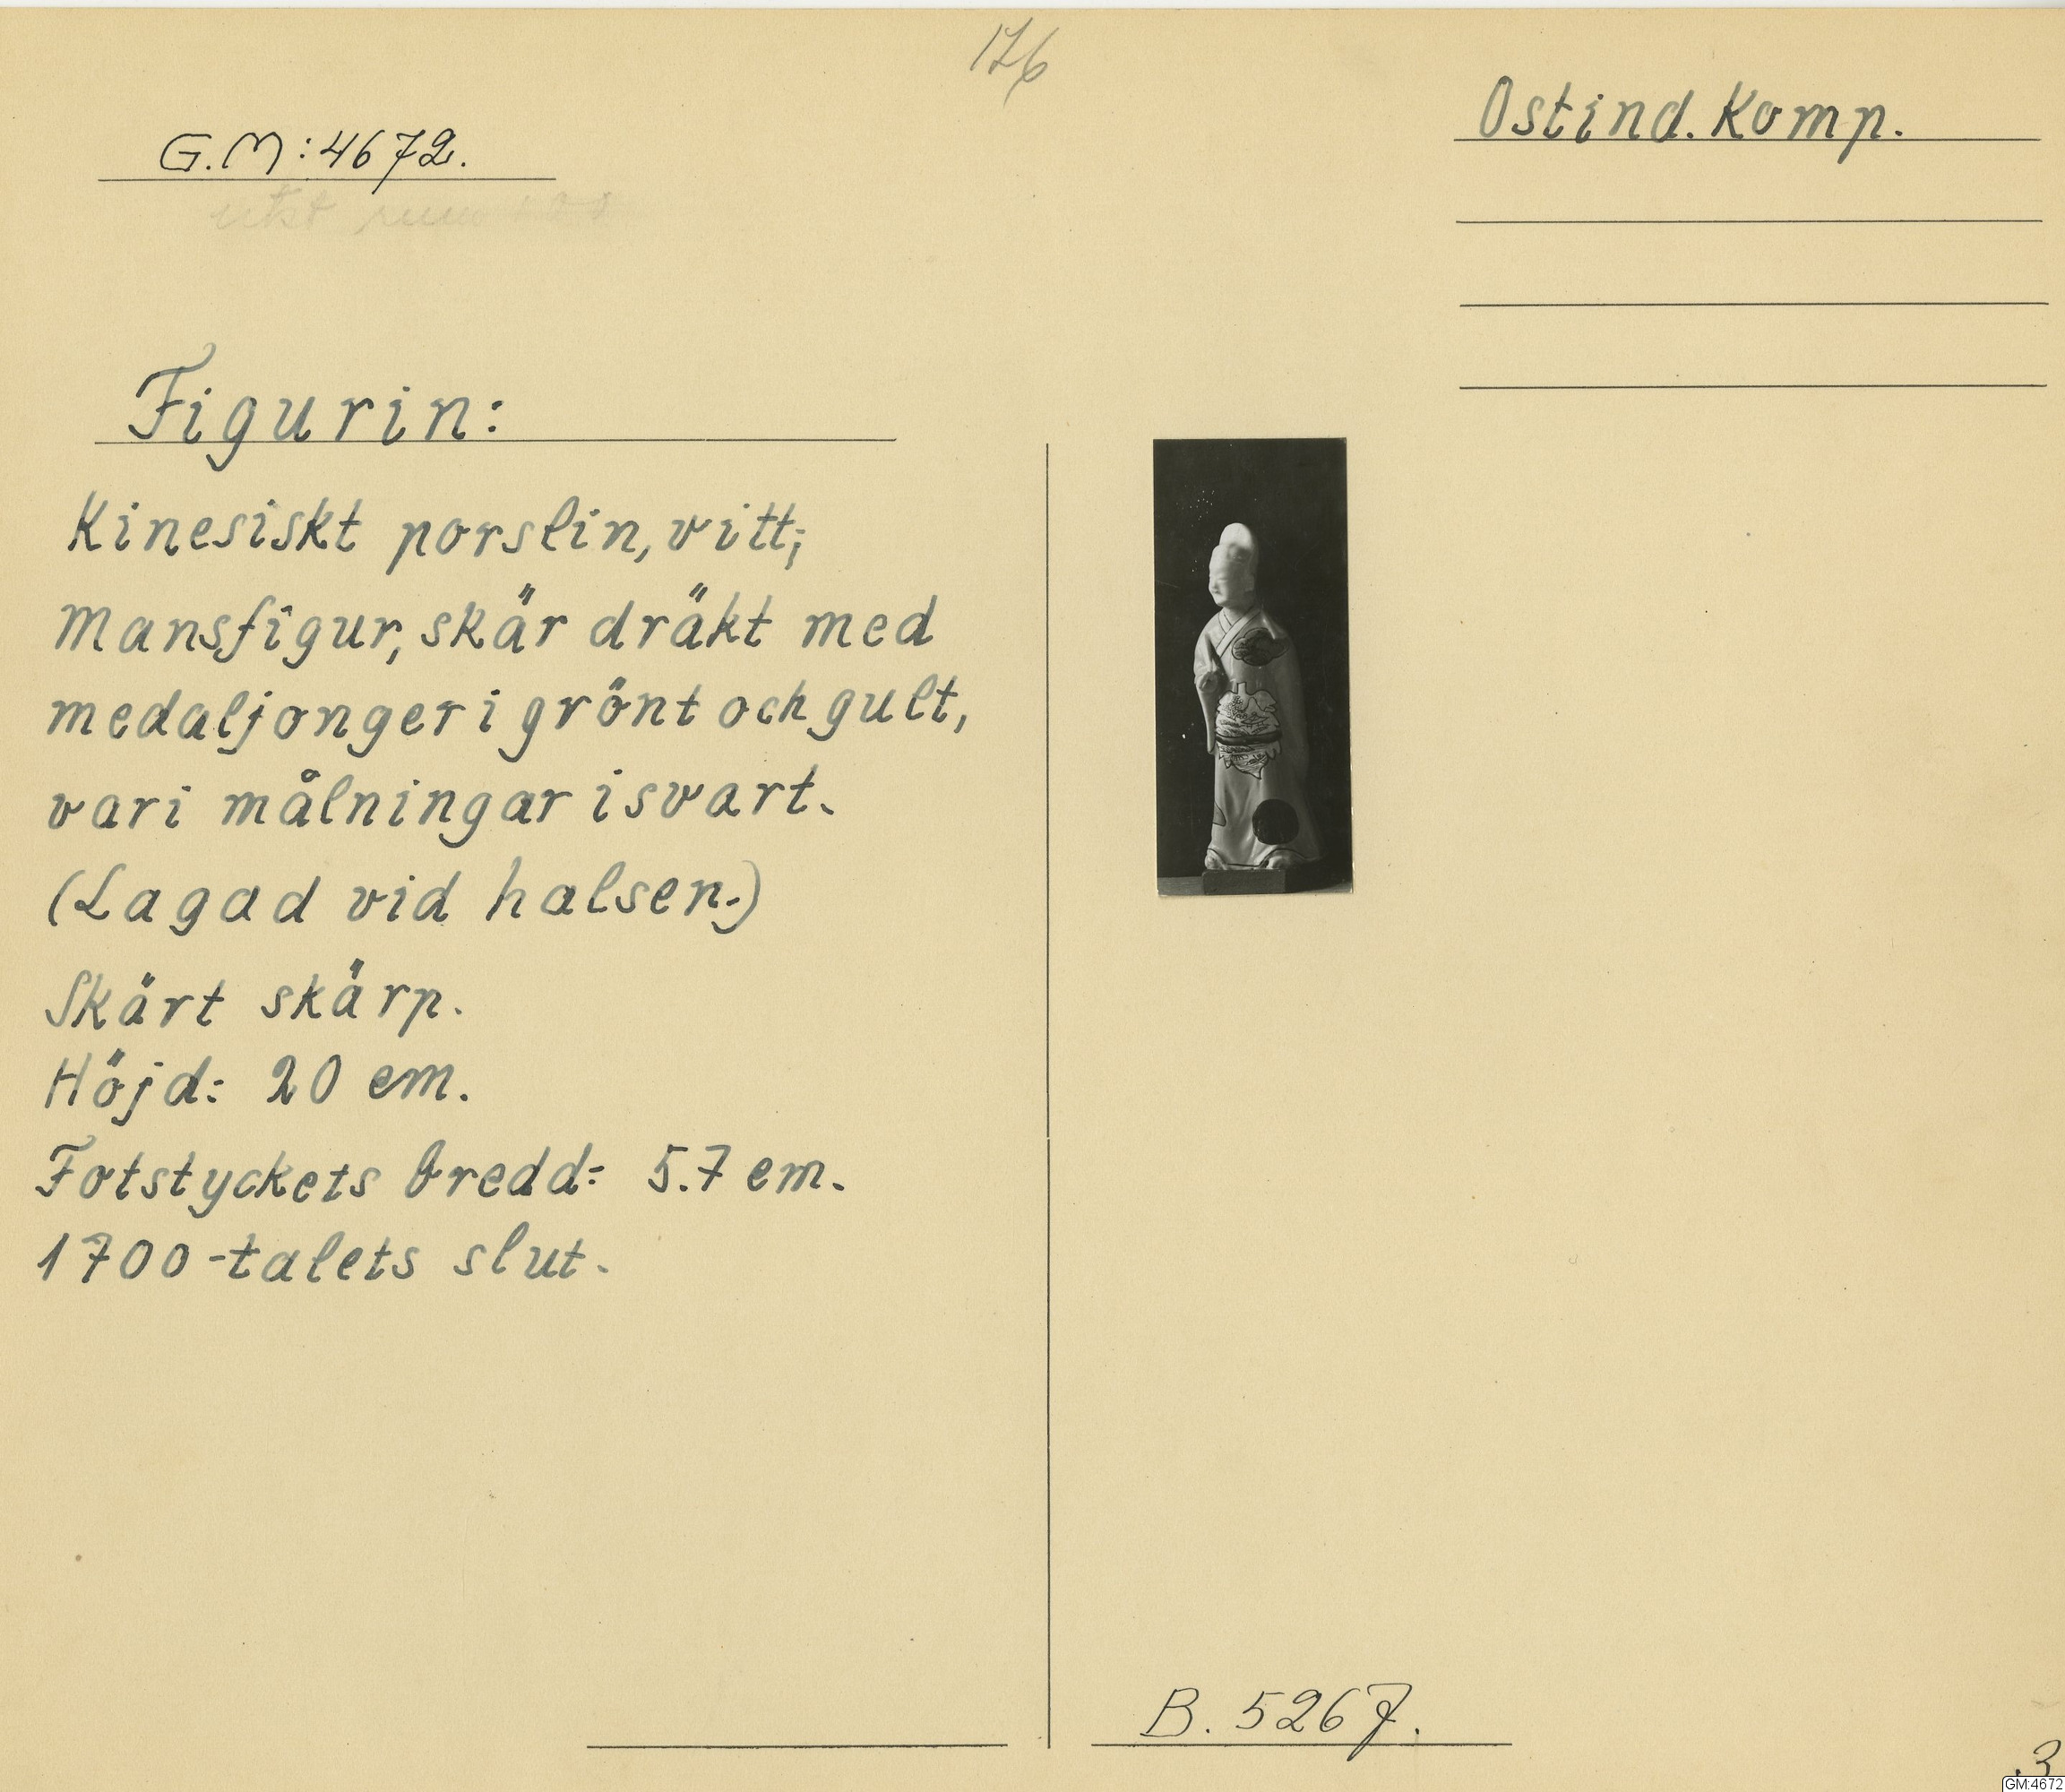 176
G.M:4672.
Ostind. Komp.
Figurin:
Kinesiskt porslin, vitt;
Mansfigur, skär dräkt med
medaljonger i grönt och gult,
vari målningar i svart.
(Lagad vid halsen.)
Skärt skärp.
Höjd: 20 cm.
Fotstyckets bredd: 5.7 cm.
1700-talets slut.
B. 5267.
3
GM:4672